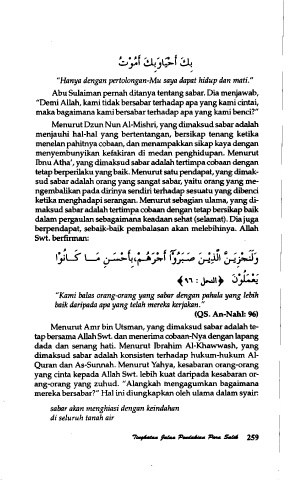 بِكَ أَحْيَاوَبِكَ أَمُوْتُ
"Hanya dengan pertolongan-Mu saya dapat hidup dan mati."
Abu Sulaiman pernah ditanya tentang sabar. Dia menjawab,
"Demi Allah, kami tidak bersabar terhadap apa yang kami cintai,
maka bagaimana kami bersabar terhadap apa yang kami benci?"
Menurut Dzun Nun Al-Mishri, yang dimaksud sabar adalah
menjauhi hal-hal yang bertentangan, bersikap tenang ketika
menelan pahitnya cobaan, dan menampakkan sikap kaya dengan
menyembunyikan kefakiran di medan penghidupan. Menurut
Ibnu Atha', yang dimaksud sabar adalah tertimpa cobaan dengan
tetap berperilaku yang baik. Menurut satu pendapat, yang dimak-
sud sabar adalah orang yang sangat sabar, yaitu orang yang me-
ngembalikan pada dirinya sendiri terhadap sesuatu yang dibenci
ketika menghadapi serangan. Menurut sebagian ulama, yang di-
maksud sabar adalah tertimpa cobaan dengan tetap bersikap baik
dalam pergaulan sebagaimana keadaan sehat (selamat). Dia juga
berpendapat, sebaik-baik pembalasan akan melebihinya. Allah
Swt. berfirman:
وَلَنَجْزِيَنَّ الَّذِيْنَ صَبَرُوْآ أَجْرَهُمْ بِأَحْسَنِ مَا كَانُوْا
يَعْمَلُوْنَ ﴿النحل : ٩٦﴾
"Kami balas orang-orang yang sabar dengan pahala yang lebih
baik daripada apa yang telah mereka kerjakan."
(QS. An-Nahl: 96)
Menurut Amr bin Utsman, yang dimaksud sabar adalah te-
tap bersama Allah Swt. dan menerima cobaan-Nya dengan lapang
dada dan senang hati. Menurut Ibrahim Al-Khawwash, yang
dimaksud sabar adalah konsisten terhadap hukum-hukum Al-
Quran dan As-Sunnah. Menurut Yahya, kesabaran orang-orang
yang cinta kepada Allah Swt. lebih kuat daripada kesabaran or-
ang-orang yang zuhud. "Alangkah mengagumkan bagaimana
mereka bersabar?" Hal ini diungkapkan oleh ulama dalam syair:
sabar akan menghiasi dengan keindahan
di seluruh tanah air
Tingkatan Jalan Pendakian Para Salik 259